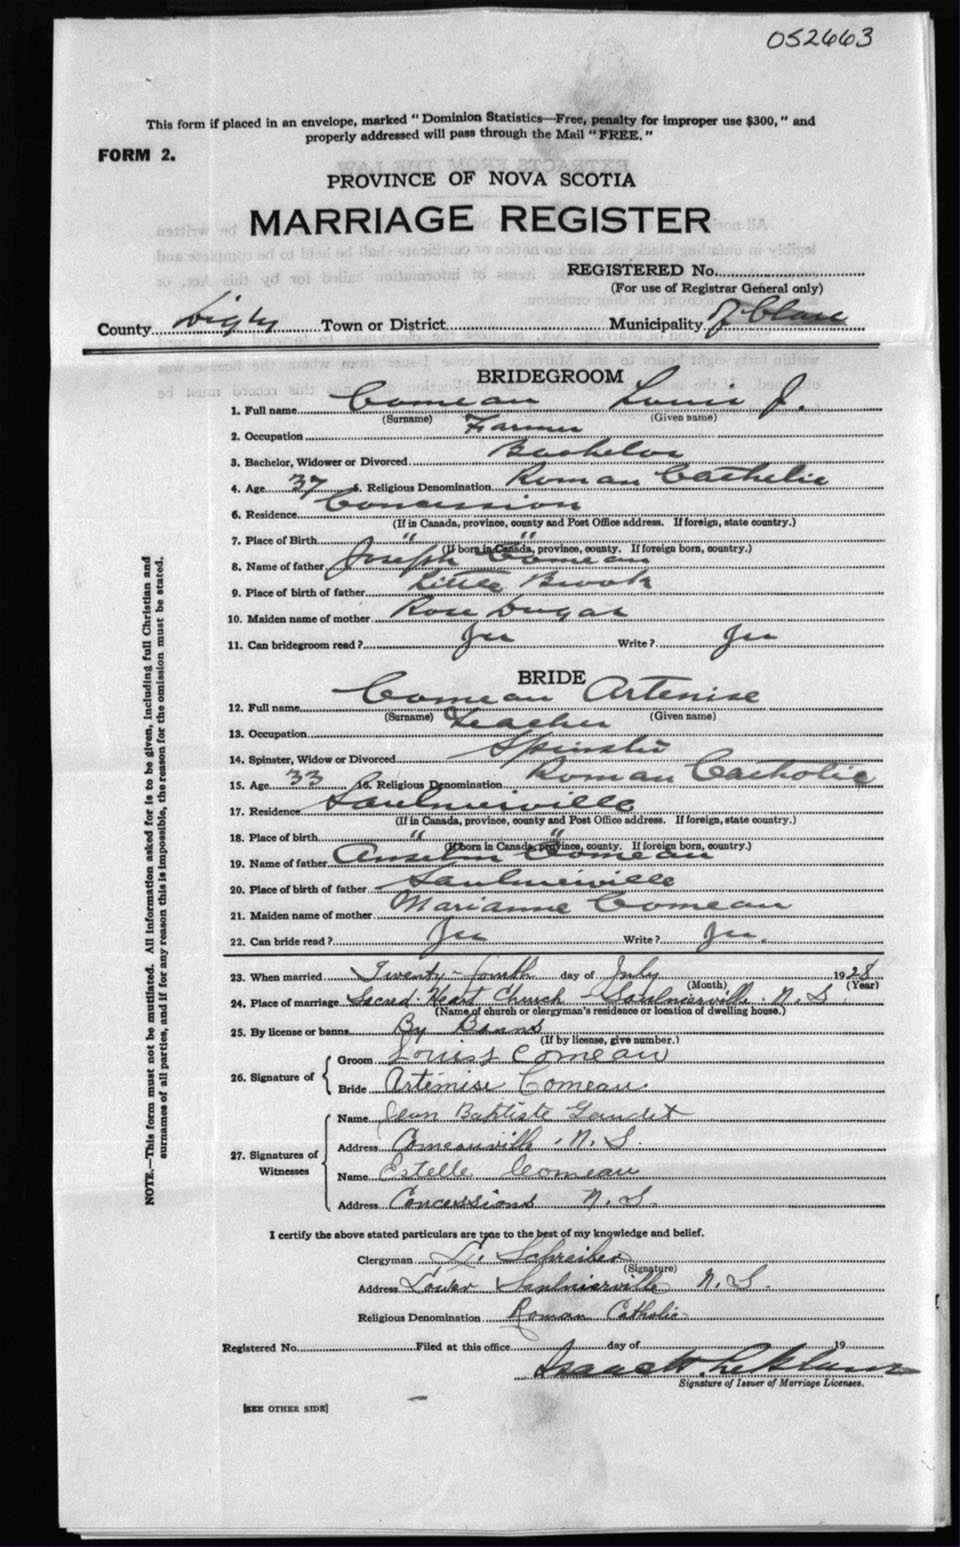 052663
This form if placed in an envelope, marked "Dominion Statistics—Free, penalty for improper use $300," and
properly addressed will pass through the Mail "FREE."
FORM 2.
PROVINCE OF NOVA SCOTIA
MARRIAGE REGISTER
REGISTERED No.
(For use of Registrar General only)
County Digby Town or District Municipality of Clare
BRIDEGROOM
1. Full name Comeau Louis J.
(Surname) (Given name)
2. Occupation Farmer
3. Bachelor, Widower or Divorced Bachelor
4. Age 37 5. Religious Denomination Roman Catholic
6. Residence Concession
(If in Canada, province, county and Post Office address. If foreign, state country.)
7. Place of Birth " "
(If born in Canada, province, county. If foreign born, country.)
8. Name of father Joseph Comeau
9. Place of birth of father Little Brook
10. Maiden name of mother Rose Dugas
11. Can bridegroom read? Yes Write? Yes
BRIDE
12. Full name Comeau Artemise
(Surname) (Given name)
13. Occupation Teacher
14. Spinster, Widow or Divorced Spinster
15. Age 33 16. Religious Denomination Roman Catholic
17. Residence Saulnierville
(If in Canada, province, county and Post Office address. If foreign, state country.)
18. Place of birth " "
(If born in Canada, province, county. If foreign born, country.)
19. Name of father Anselm Comeau
20. Place of birth of father Saulnierville
21. Maiden name of mother Marianne Comeau
22. Can bride read? Yes Write? Yes.
23. When married Twenty-fourth day of July 1928
(Month) (Year)
24. Place of marriage Sacred Heart Church - Saulnierville N.S.
(Name of church or clergyman's residence or location of dwelling house.)
25. By license or banns By Banns
(If by license, give number.)
26. Signature of
Groom Louis J Comeau
Bride Artémise Comeau.
27. Signatures of Witnesses
Name Jean Baptiste Gaudet
Address Comeauville, N.S.
Name Estelle Comeau
Address Concessions N.S.
I certify the above stated particulars are true to the best of my knowledge and belief.
Clergyman Schreiber
(Signature)
Address Lower Saulnierville N.S.
Religious Denomination Roman Catholic
Registered No. Filed at this office day of 19
Isaac H. LeBlanc
Signature of Issuer of Marriage Licenses.
[SEE OTHER SIDE]
NOTE.—This form must not be mutilated. All information asked for is to be given, including full Christian and
surnames of all parties, and if for any reason this is impossible, the reason for the omission must be stated.